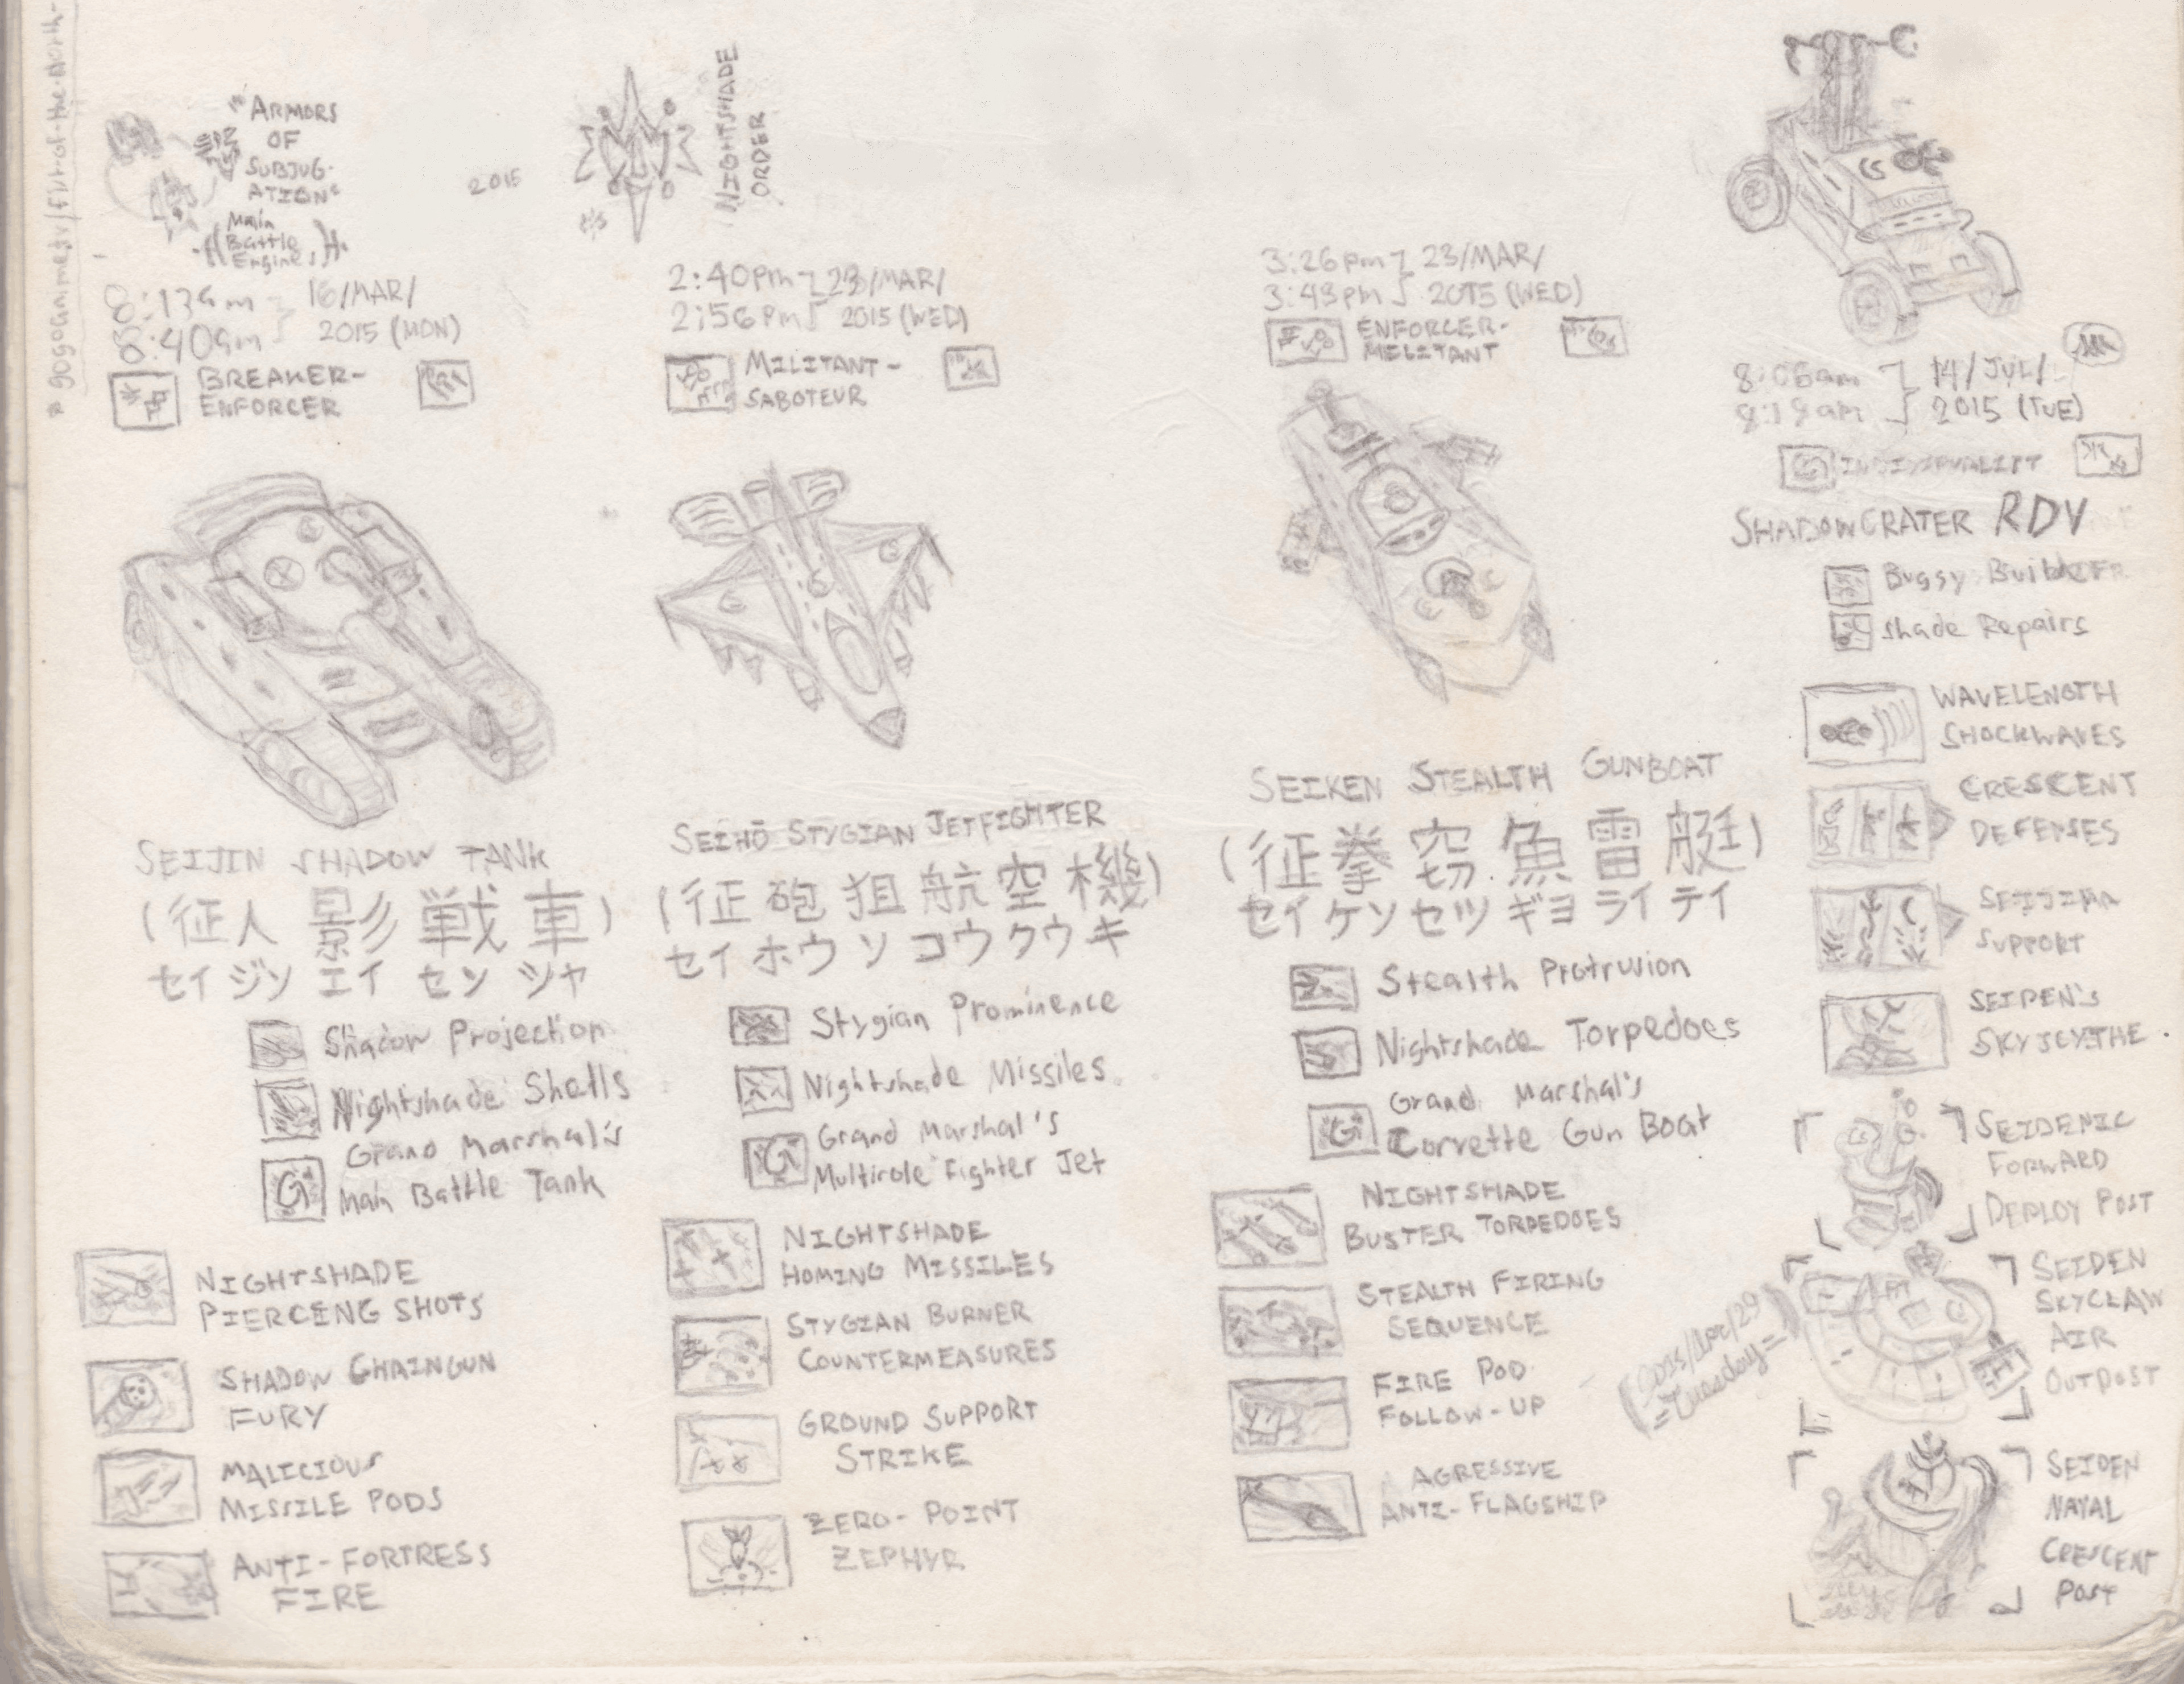 "ARMORS
OF
SUBJUG-
ATION"
Main
Battle
Engines
8:40am
16/MAR/
2015 (MON)
BREAKER-
ENFORCER
SEIJIN SHADOW TANK
(征人影戦車)
セイ ジン エイ セン シャ
Shadow Projection
Nightshade Shells
Grand Marshal's
Main Battle Tank
NIGHTSHADE
PIERCING SHOTS
SHADOW CHAINGUN
FURY
MALICIOUS
MISSILE PODS
ANTI-FORTRESS
FIRE
2015
NIGHTSHADE
ORDER
2:40pm
2:56pm
23/MAR/
2015 (WED)
MILITANT-
SABOTEUR
SEIHŌ STYGIAN JETFIGHTER
(征砲狙航空機)
セイ ホウ ソ コウ クウ キ
Stygian Prominence
Nightshade Missiles
Grand Marshal's
Multirole Fighter Jet
NIGHTSHADE
HOMING MISSILES
STYGIAN BURNER
COUNTERMEASURES
GROUND SUPPORT
STRIKE
ZERO-POINT
ZEPHYR
3:26pm
3:43pm
23/MAR/
2015 (WED)
ENFORCER-
MILITANT
SEIKEN STEALTH GUNBOAT
(征拳窃魚雷艇)
セイ ケン セツ ギョ ライ テイ
Stealth Protrusion
Nightshade Torpedoes
Grand Marshal's
Corvette Gun Boat
NIGHTSHADE
BUSTER TORPEDOES
STEALTH FIRING
SEQUENCE
FIRE POD
FOLLOW-UP
AGRESSIVE
ANTI-FLAGSHIP
8:06am
14/JUL/
2015 (TUE)
INDIVIDUALIST
SHADOWCRATER RDV
Buggy Builder
Shade Repairs
WAVELENGTH
SHOCKWAVES
CRESCENT
DEFENSES
SUPPORT
SEIDEN'S
SKYSCYTHE
SEIDENIC
FORWARD
DEPLOY POST
SEIDEN
SKYCLAW
AIR
OUTPOST
=Tuesday=
SEIDEN
NAVAL
CRESCENT
POST